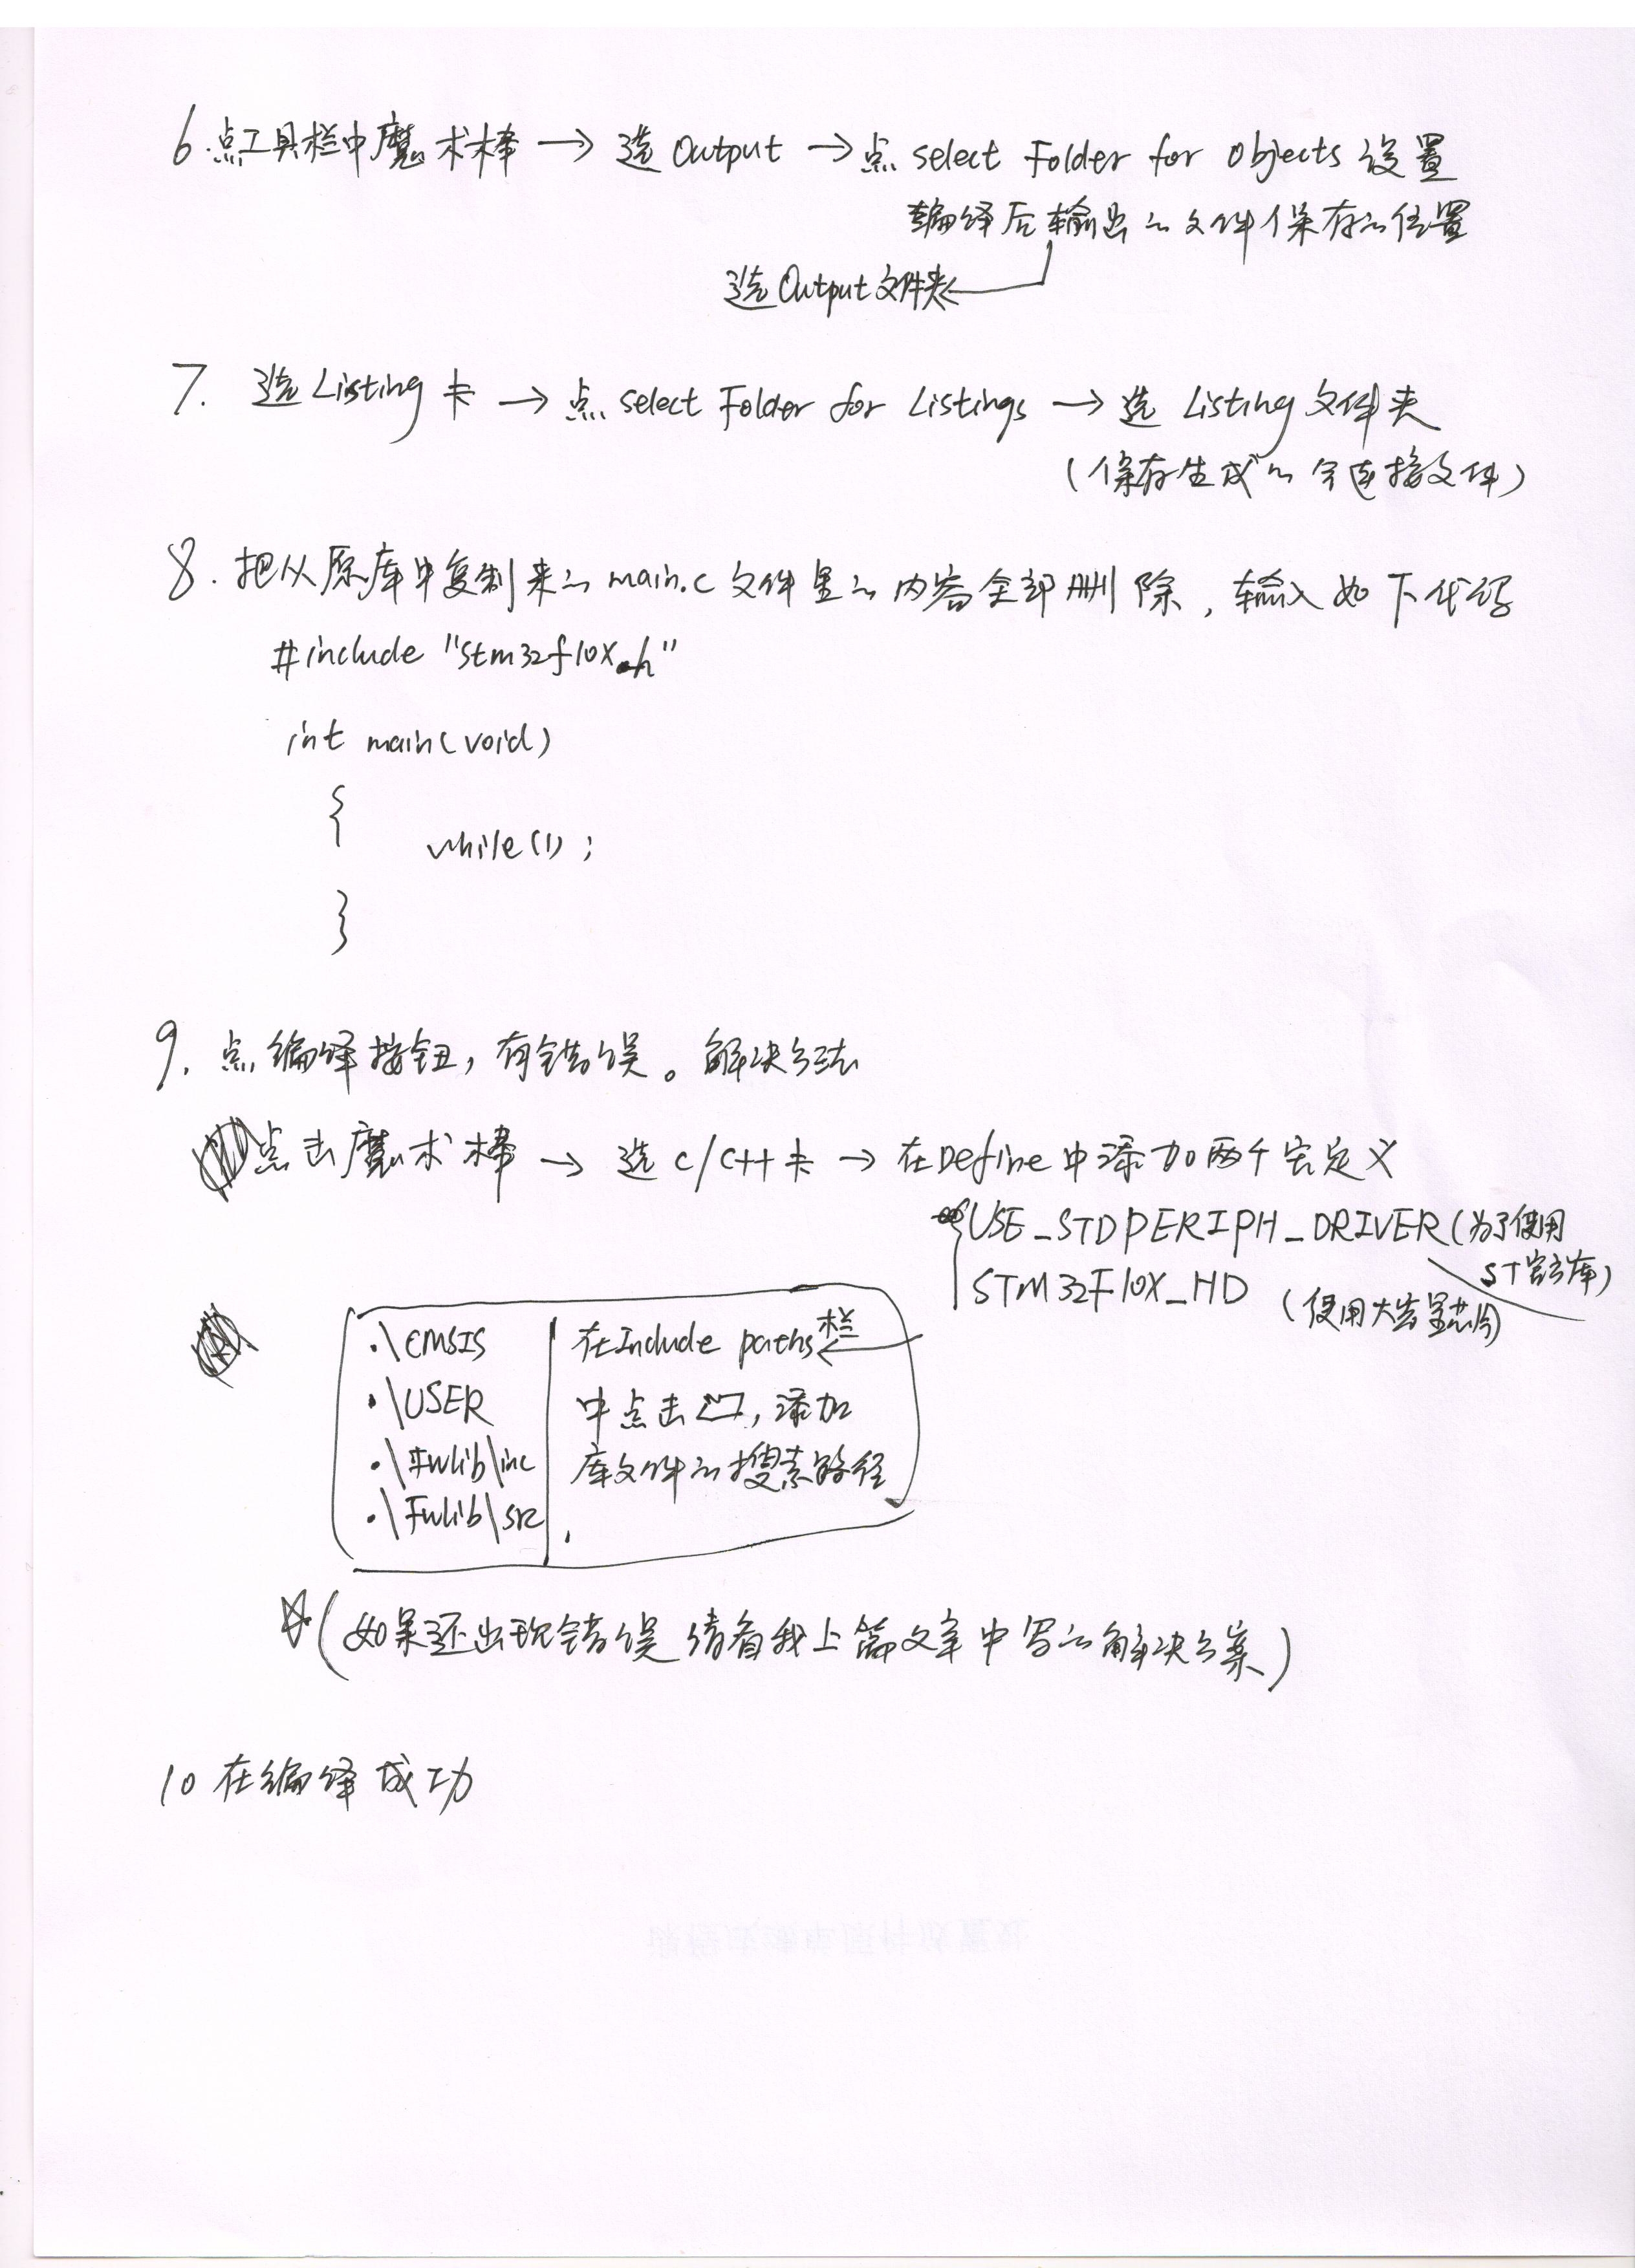 6.点工具栏中魔术棒 → 选 Output → 点 select Folder for Objects 设置
编译后输出的文件保存的位置
选 Output 文件夹 ←
7. 选 Listing 卡 → 点 select Folder for Listings → 选 Listing 文件夹
(保存生成的 连接文件)
8. 把从原库中复制来的 main.c 文件里的内容全部删除, 输入如下代码
#include "stm32f10x.h"
int main(void)
{
while(1);
}
9. 点编译按钮, 有错误。解决方法
点击魔术棒 → 选 C/C++ 卡 → 在Define 中添加两个宏定义
USE_STDPERIPH_DRIVER (为了使用
ST官方库)
STM32F10X_HD (使用大容量芯片)
.\CMSIS
.\USER
.\Fwlib\inc
.\Fwlib\src
在Include paths栏 ←
中点击 , 添加
库文件的搜索路径
☆(如果还出现错误 请看我上篇文章中写的解决方案)
10 在编译成功